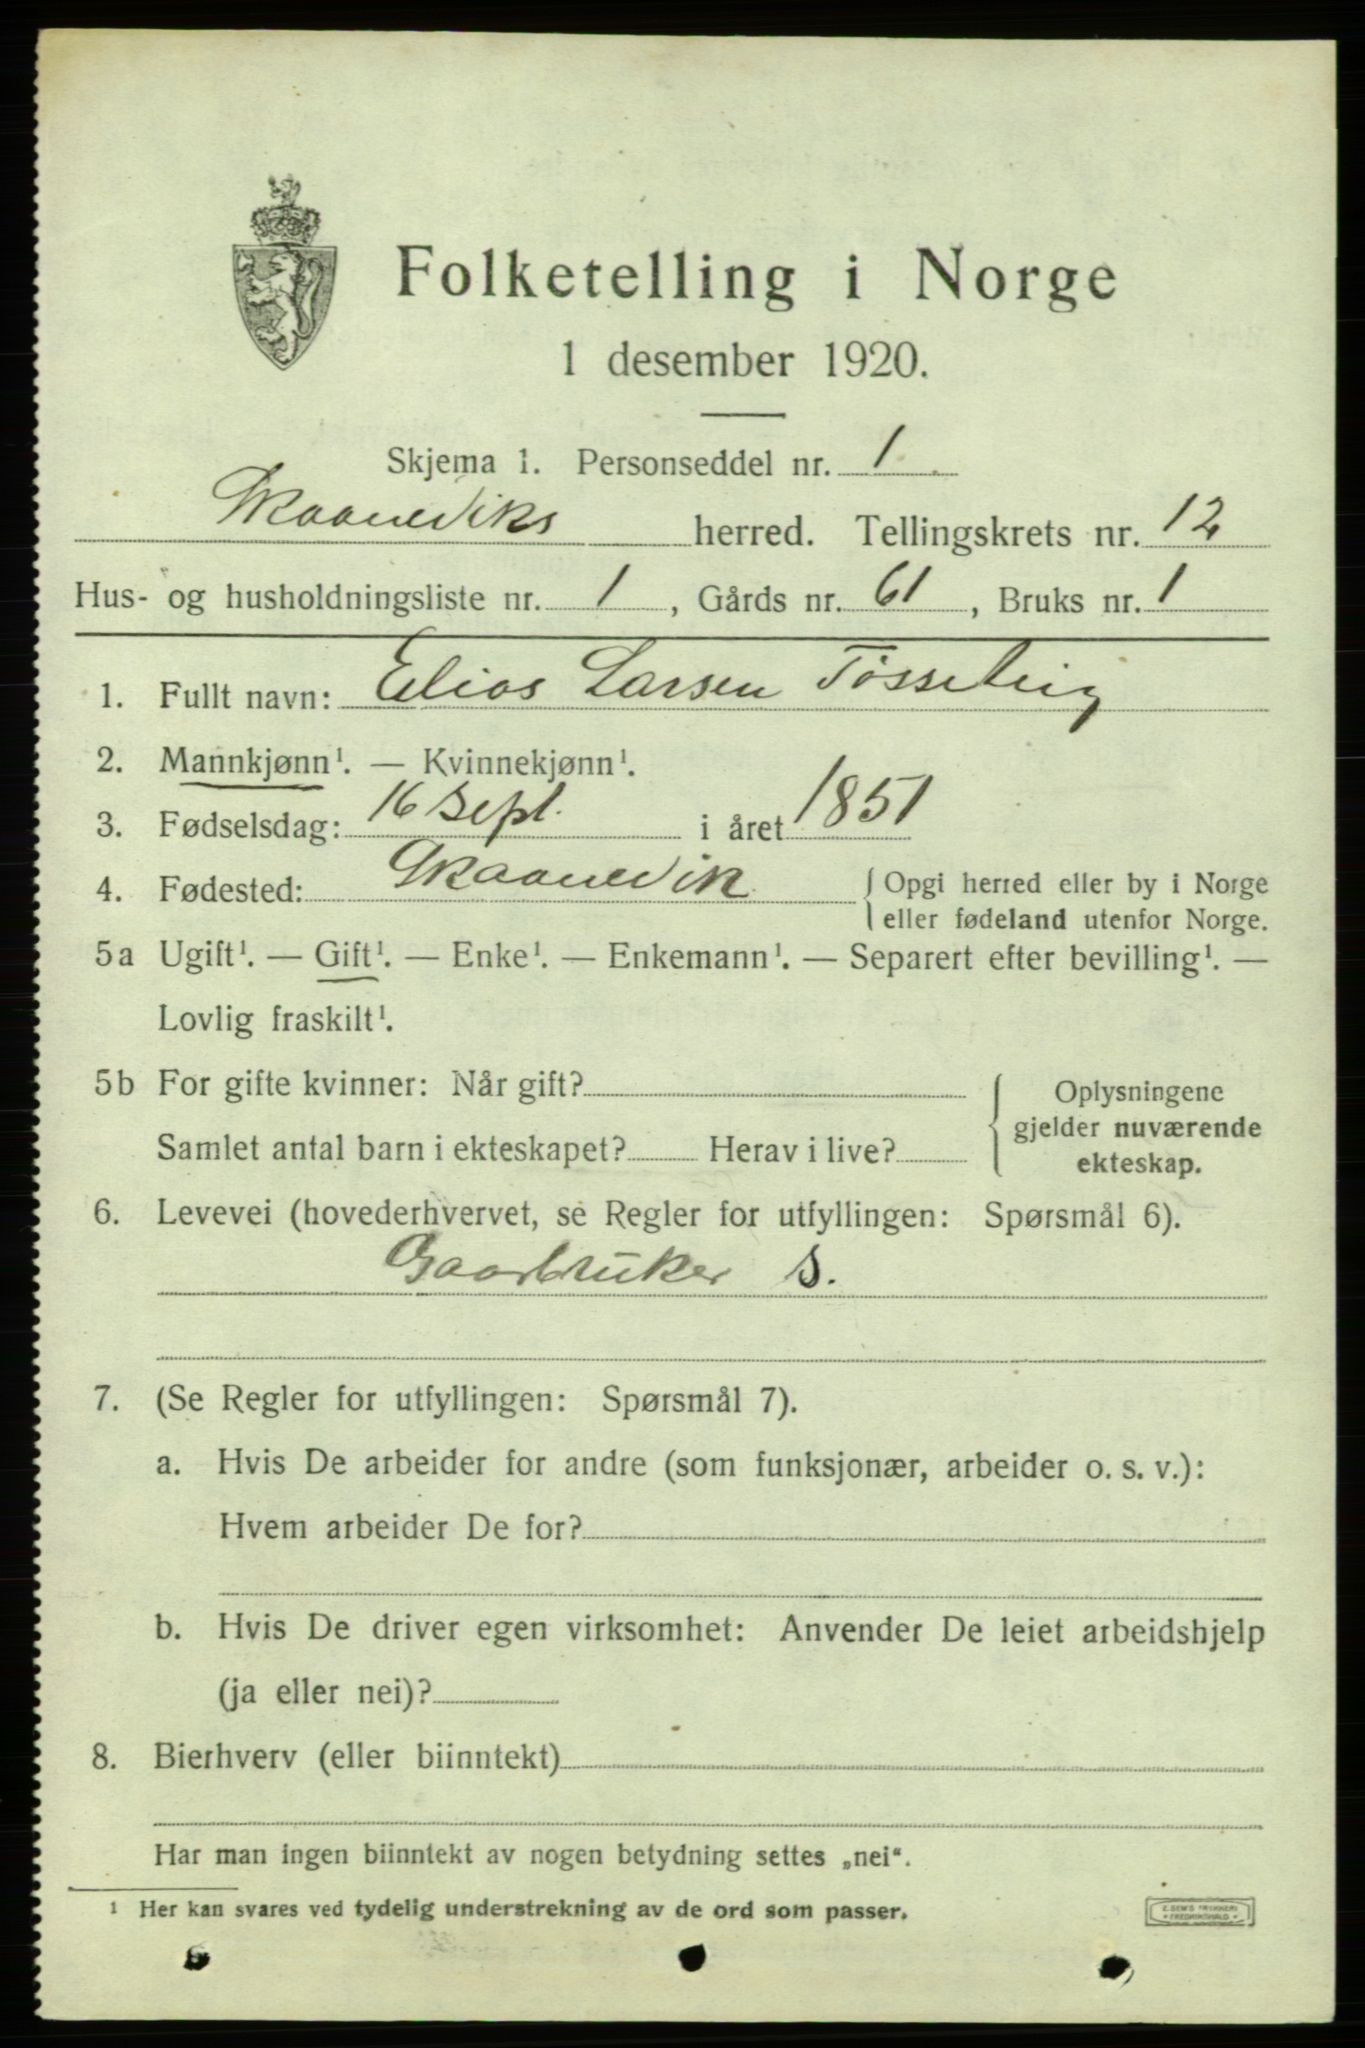 Folketelling i Norge
1 desember 1920.
Skjema 1. Personseddel nr. 1
Skaaneviks herred. Tellingskrets nr. 12
Hus- og husholdningsliste nr. 1, Gårds nr. 61, Bruks nr. 1
1. Fullt navn: Elias Larsen
2. Mannkjønn¹. — Kvinnekjønn¹.
3. Fødselsdag: 16 Sept. i året 1851
4. Fødested: Skaanevik { Opgi herred eller by i Norge
eller fødeland utenfor Norge.
5a Ugift¹. — Gift¹. — Enke¹. — Enkemann¹. — Separert efter bevilling¹. —
Lovlig fraskilt¹.
5b For gifte kvinner: Når gift?
Samlet antal barn i ekteskapet? Herav i live?
{ Oplysningene
gjelder nuværende
ekteskap.
6. Levevei (hovederhvervet, se Regler for utfyllingen: Spørsmål 6).
Gaarbruker S.
7. (Se Regler for utfyllingen: Spørsmål 7).
a. Hvis De arbeider for andre (som funksjonær, arbeider o. s. v.):
Hvem arbeider De for?
b. Hvis De driver egen virksomhet: Anvender De leiet arbeidshjelp
(ja eller nei)?
8. Bierhverv (eller biinntekt)
Har man ingen biinntekt av nogen betydning settes „nei“.
¹ Her kan svares ved tydelig understrekning av de ord som passer.